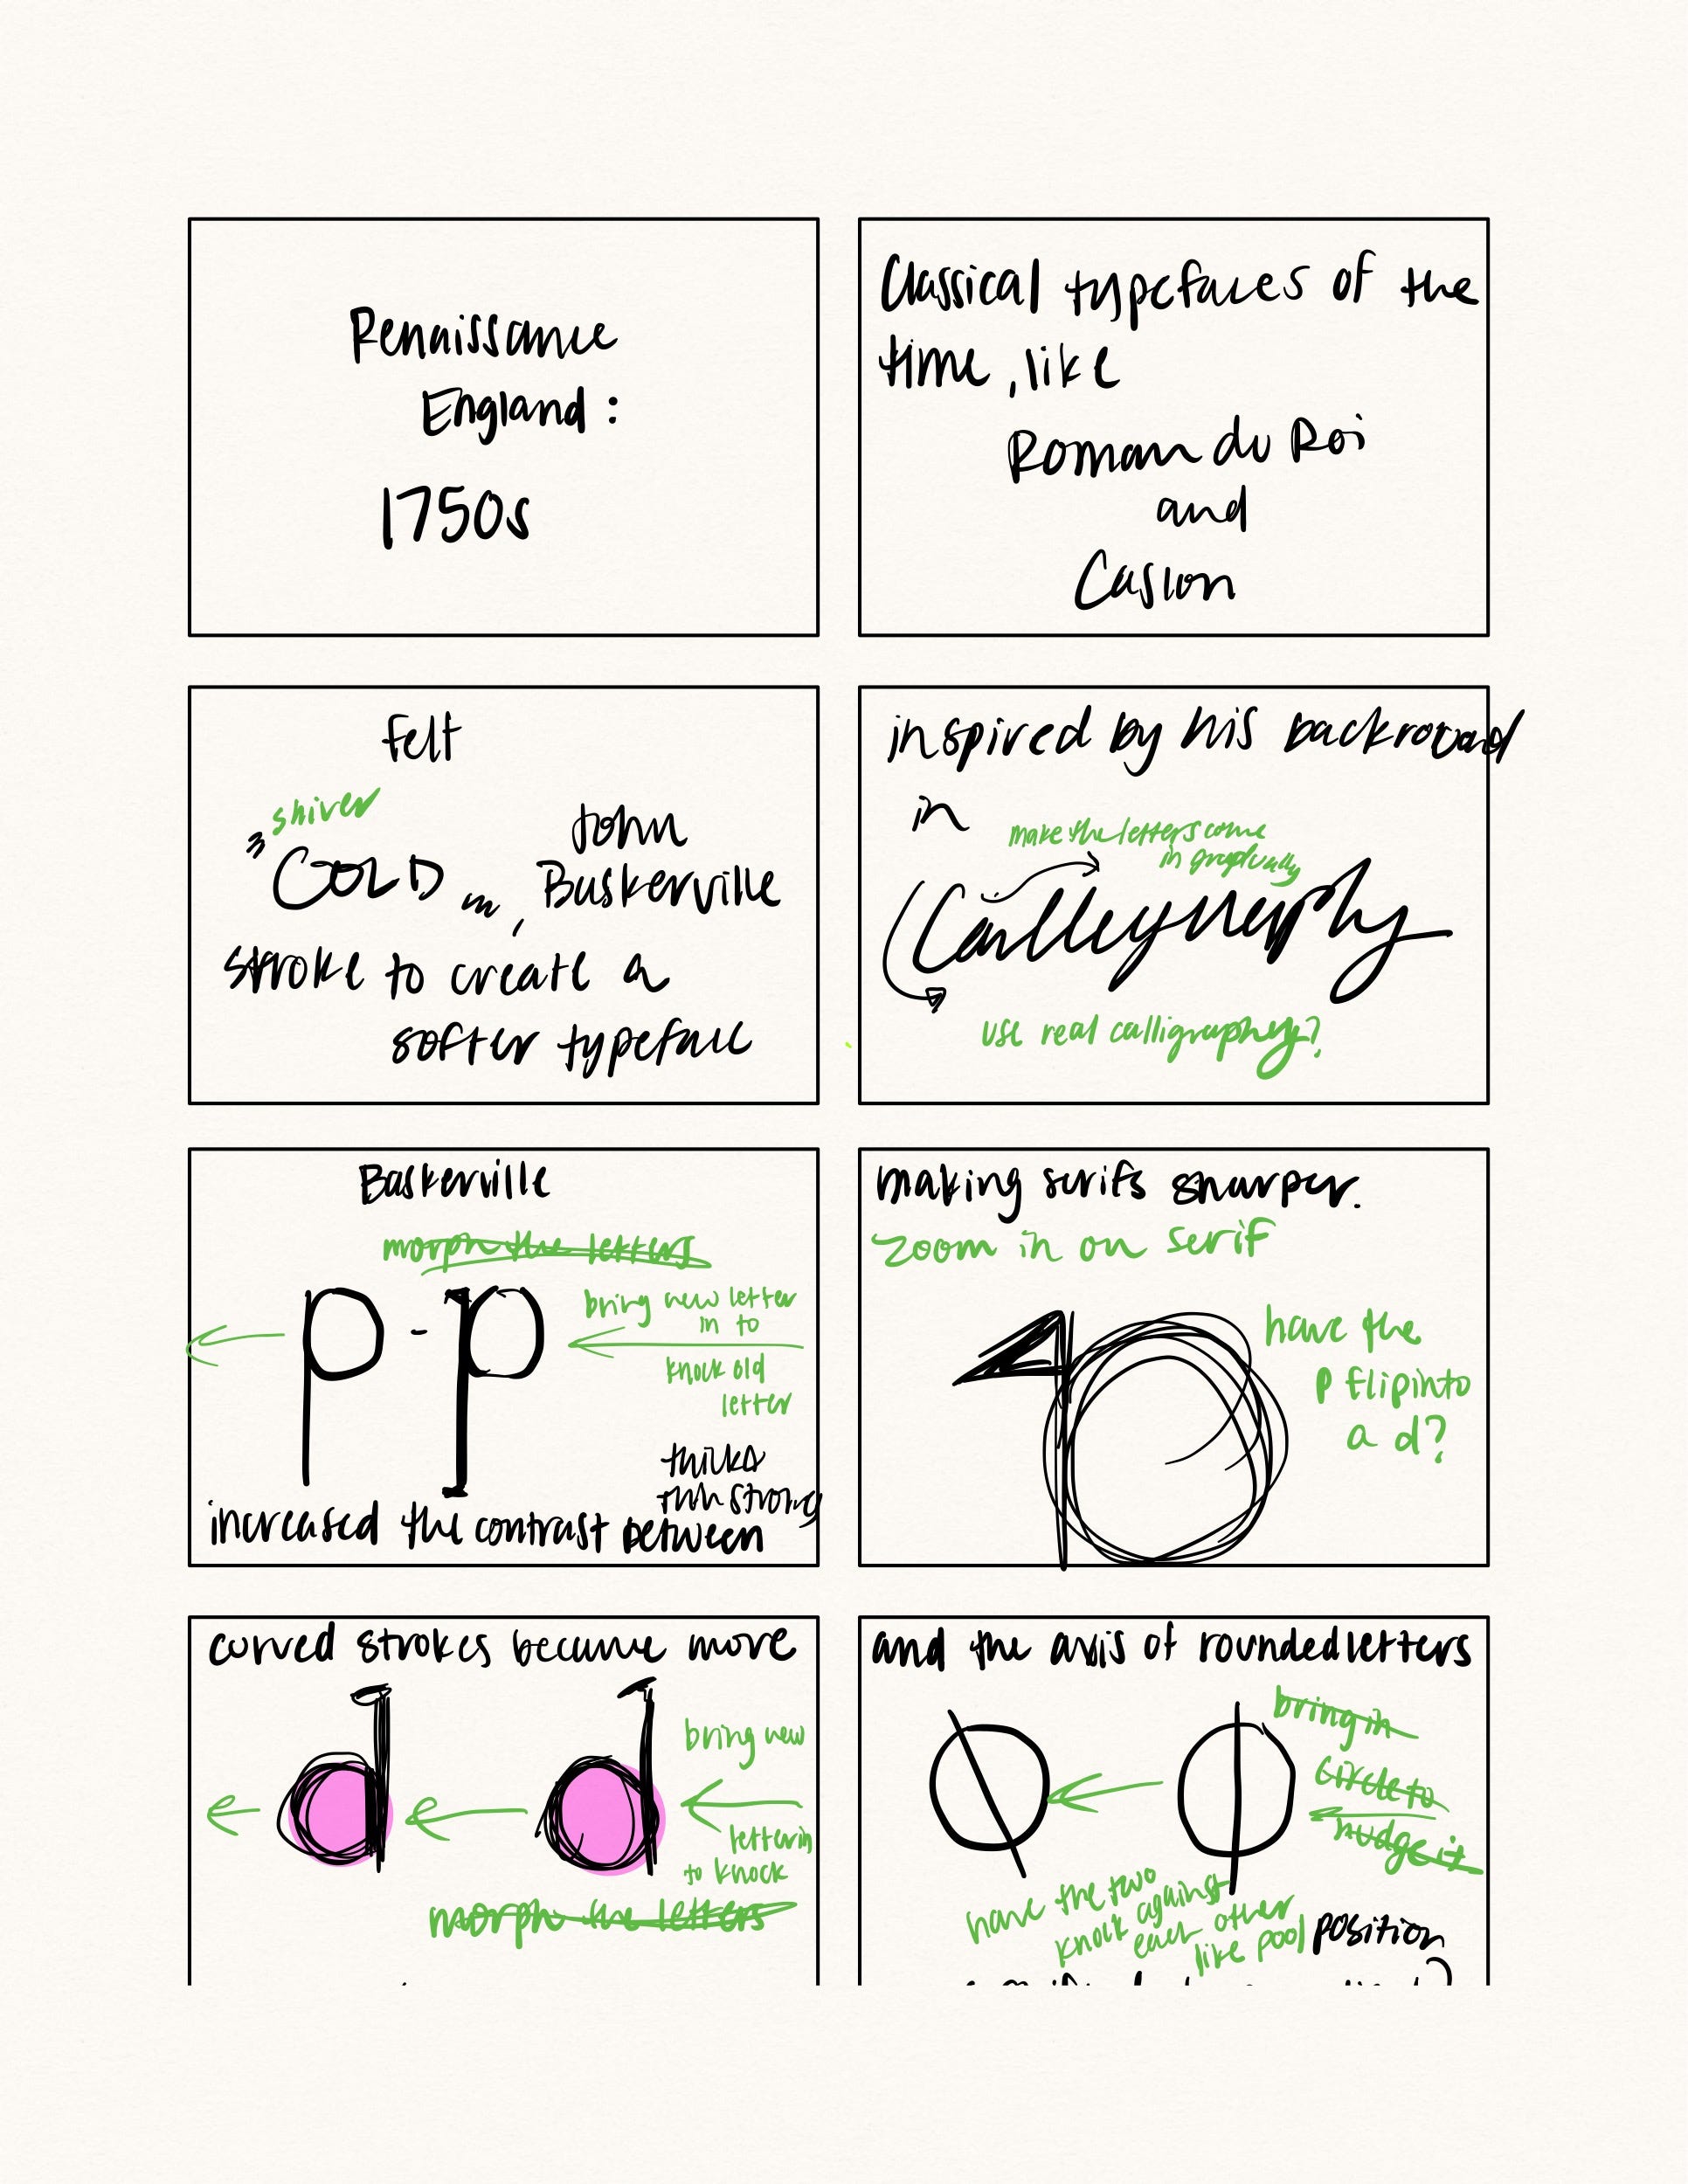 Renaissance
England:
1750s
Classical typefaces of the
time, like
Roman du Roi
and
Caslon
felt
shiver
COLD
John
Baskerville
stroke to create a
softer typeface
inspired by his backround
in
make the letters come
in gradually
Calligraphy
use real calligraphy?
Baskerville
morph the letters
p - p
bring new letter
in to
knock old
letter
thick &
thin strong
increased the contrast between
making serifs sharper.
zoom in on serif
have the
p flip into
a d?
curved strokes became more
d d
bring new
letter in
to knock
morph the letters
and the axis of rounded letters
bring in
circle to
nudge it
have the two
knock against
each other
like pool
position